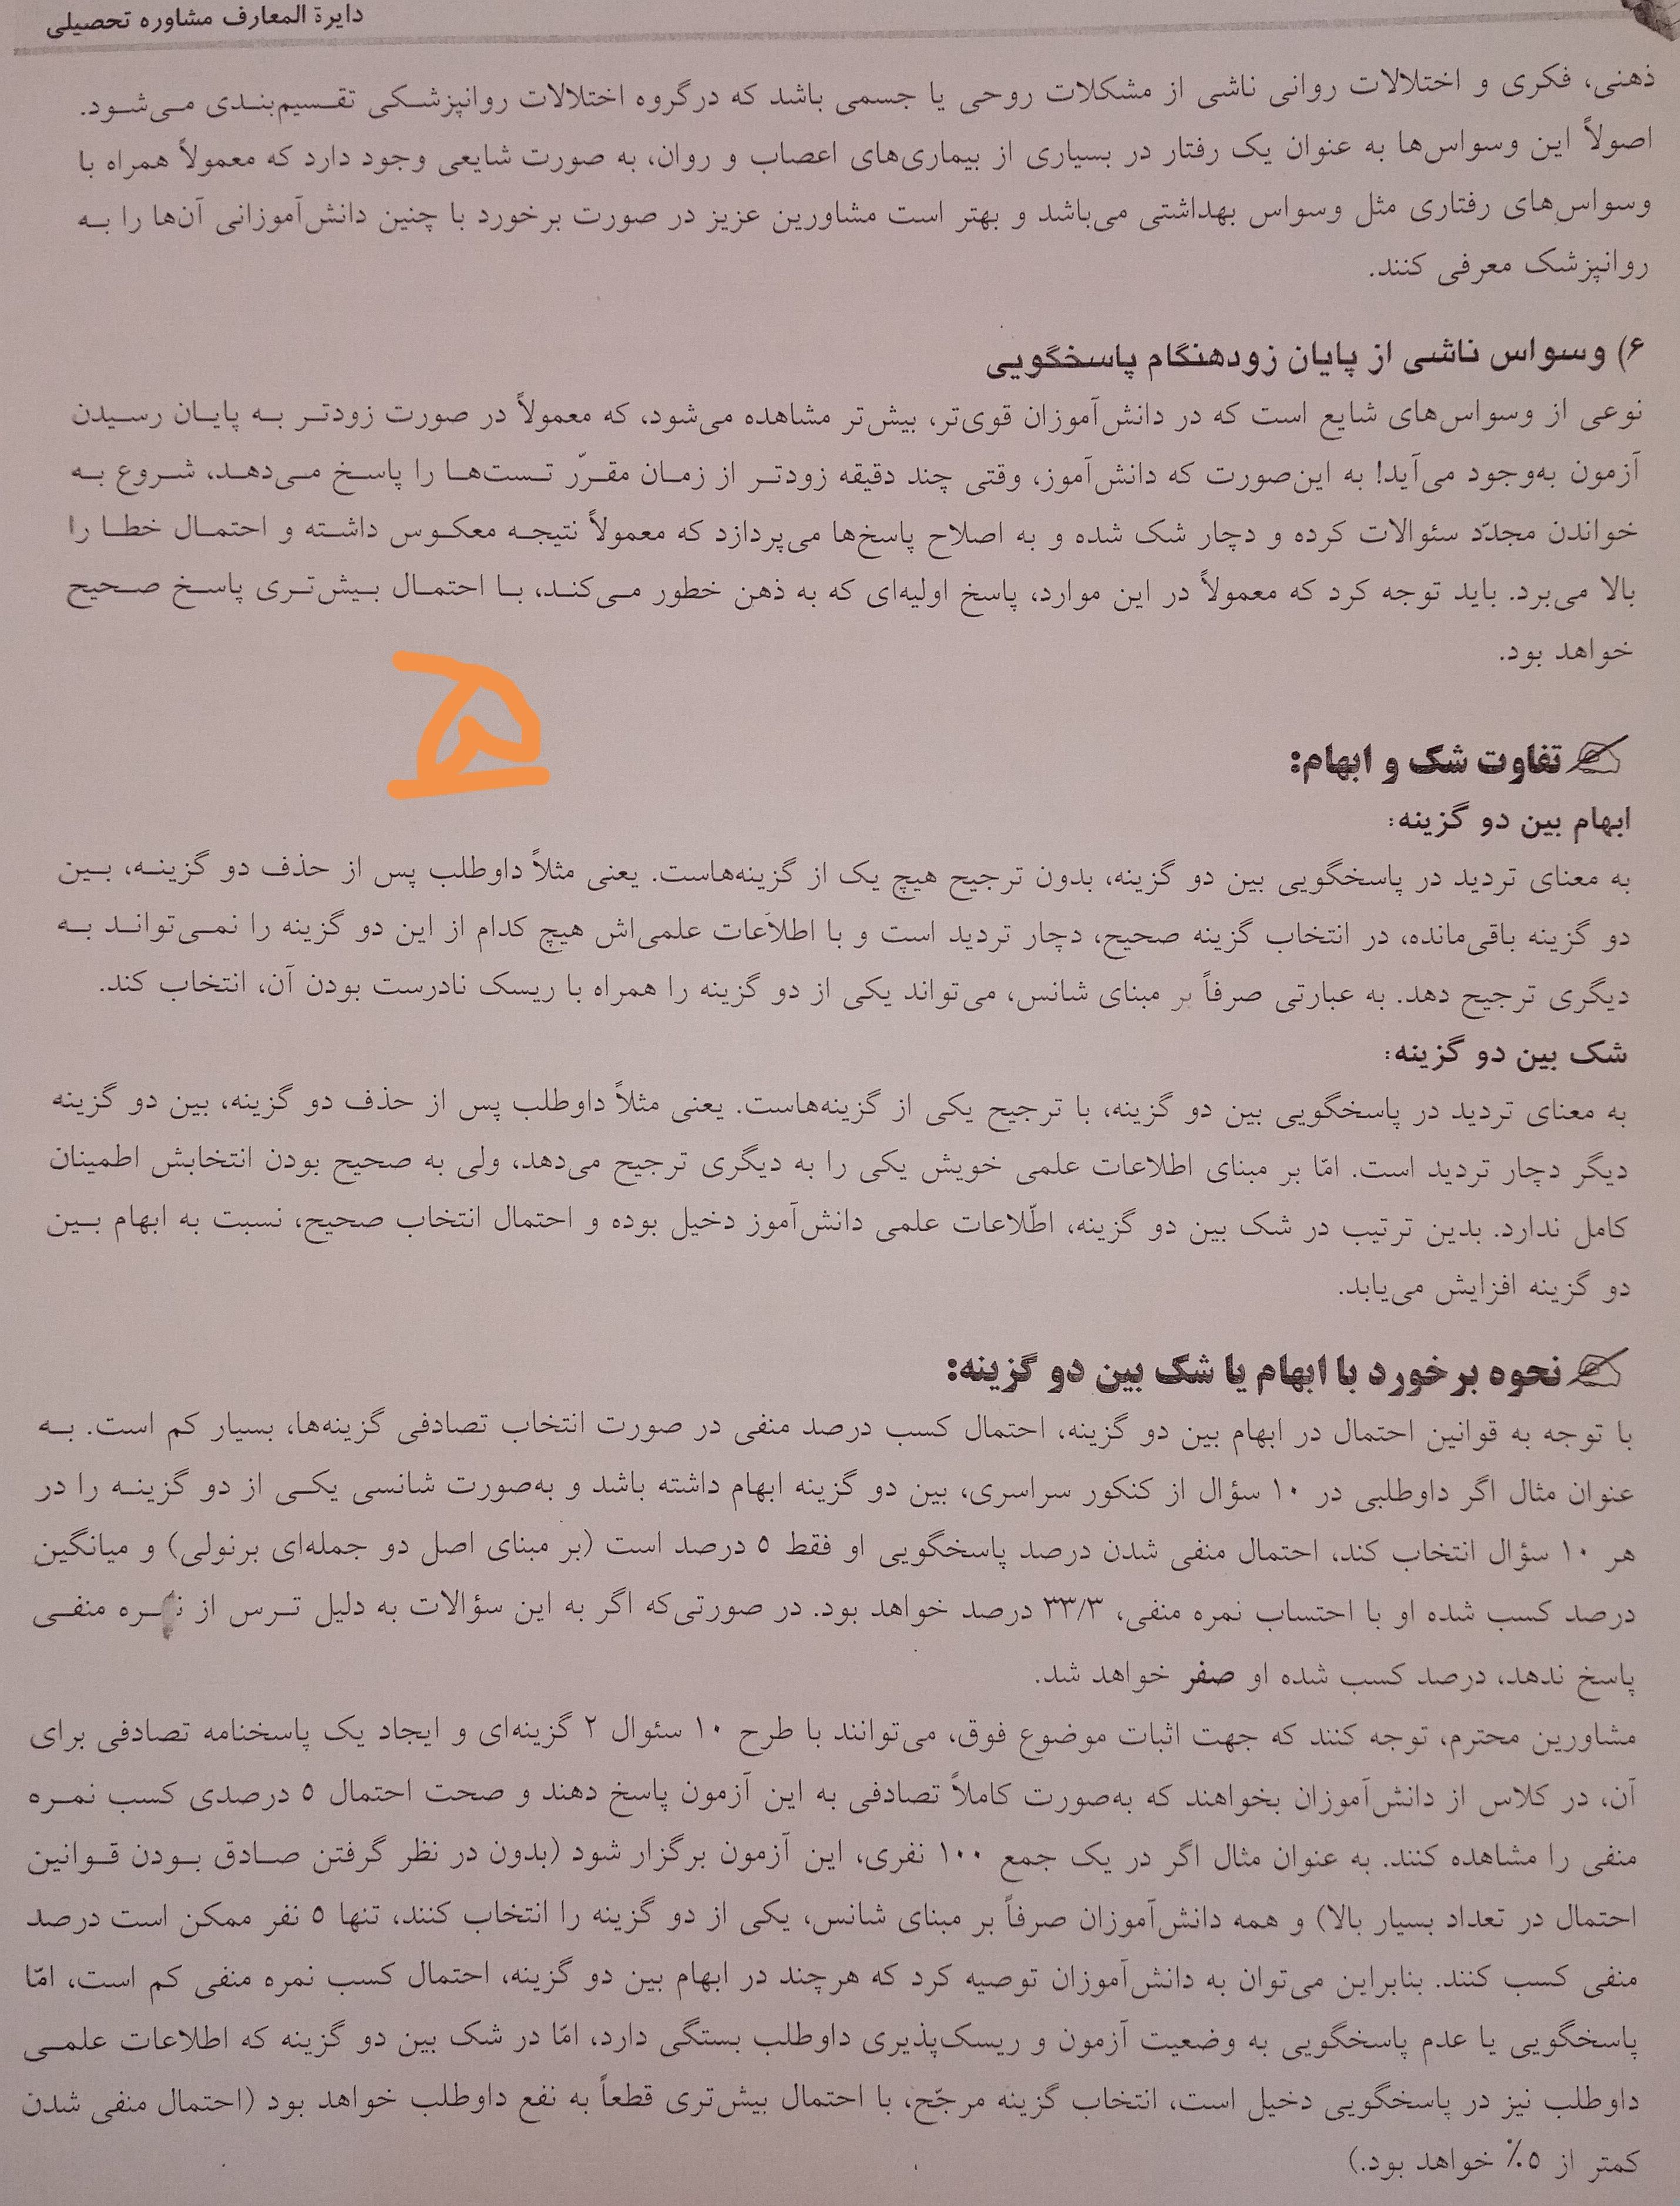 دایرة المعارف مشاوره تحصیلی
ذهنی، فکری و اختلالات روانی ناشی از مشکلات روحی یا جسمی باشد که درگروه اختلالات روانپزشکی تقسیم‌بندی می‌شود.
اصولاً این وسواس‌ها به عنوان یک رفتار در بسیاری از بیماری‌های اعصاب و روان، به صورت شایعی وجود دارد که معمولاً همراه با
وسواس‌های رفتاری مثل وسواس بهداشتی می‌باشد و بهتر است مشاورین عزیز در صورت برخورد با چنین دانش‌آموزانی آن‌ها را به
روانپزشک معرفی کنند.
۶) وسواس ناشی از پایان زودهنگام پاسخگویی
نوعی از وسواس‌های شایع است که در دانش‌آموزان قوی‌تر، بیش‌تر مشاهده می‌شود، که معمولاً در صورت زودتر به پایان رسیدن
آزمون به‌وجود می‌آید! به این‌صورت که دانش‌آموز، وقتی چند دقیقه زودتر از زمان مقرّر تست‌ها را پاسخ می‌دهد، شروع به
خواندن مجدّد سئوالات کرده و دچار شک شده و به اصلاح پاسخ‌ها می‌پردازد که معمولاً نتیجه معکوس داشته و احتمال خطا را
بالا می‌برد. باید توجه کرد که معمولاً در این موارد، پاسخ اولیه‌ای که به ذهن خطور می‌کند، با احتمال بیش‌تری پاسخ صحیح
خواهد بود.
تفاوت شک و ابهام:
ابهام بین دو گزینه:
به معنای تردید در پاسخگویی بین دو گزینه، بدون ترجیح هیچ یک از گزینه‌هاست. یعنی مثلاً داوطلب پس از حذف دو گزینه، بین
دو گزینه باقی‌مانده، در انتخاب گزینه صحیح، دچار تردید است و با اطلاّعات علمی‌اش هیچ کدام از این دو گزینه را نمی‌تواند به
دیگری ترجیح دهد. به عبارتی صرفاً بر مبنای شانس، می‌تواند یکی از دو گزینه را همراه با ریسک نادرست بودن آن، انتخاب کند.
شک بین دو گزینه:
به معنای تردید در پاسخگویی بین دو گزینه، با ترجیح یکی از گزینه‌هاست. یعنی مثلاً داوطلب پس از حذف دو گزینه، بین دو گزینه
دیگر دچار تردید است. امّا بر مبنای اطلاعات علمی خویش یکی را به دیگری ترجیح می‌دهد، ولی به صحیح بودن انتخابش اطمینان
کامل ندارد. بدین ترتیب در شک بین دو گزینه، اطّلاعات علمی دانش‌آموز دخیل بوده و احتمال انتخاب صحیح، نسبت به ابهام بین
دو گزینه افزایش می‌یابد.
نحوه برخورد با ابهام یا شک بین دو گزینه:
با توجه به قوانین احتمال در ابهام بین دو گزینه، احتمال کسب درصد منفی در صورت انتخاب تصادفی گزینه‌ها، بسیار کم است. به
عنوان مثال اگر داوطلبی در ۱۰ سؤال از کنکور سراسری، بین دو گزینه ابهام داشته باشد و به‌صورت شانسی یکی از دو گزینه را در
هر ۱۰ سؤال انتخاب کند، احتمال منفی شدن درصد پاسخگویی او فقط ۵ درصد است (بر مبنای اصل دو جمله‌ای برنولی) و میانگین
درصد کسب شده او با احتساب نمره منفی، ۳۳/۳ درصد خواهد بود. در صورتی‌که اگر به این سؤالات به دلیل ترس از نمره منفی
پاسخ ندهد، درصد کسب شده او صفر خواهد شد.
مشاورین محترم، توجه کنند که جهت اثبات موضوع فوق، می‌توانند با طرح ۱۰ سئوال ۲ گزینه‌ای و ایجاد یک پاسخنامه تصادفی برای
آن، در کلاس از دانش‌آموزان بخواهند که به‌صورت کاملاً تصادفی به این آزمون پاسخ دهند و صحت احتمال ۵ درصدی کسب نمره
منفی را مشاهده کنند. به عنوان مثال اگر در یک جمع ۱۰۰ نفری، این آزمون برگزار شود (بدون در نظر گرفتن صادق بودن قوانین
احتمال در تعداد بسیار بالا) و همه دانش‌آموزان صرفاً بر مبنای شانس، یکی از دو گزینه را انتخاب کنند، تنها ۵ نفر ممکن است درصد
منفی کسب کنند. بنابراین می‌توان به دانش‌آموزان توصیه کرد که هرچند در ابهام بین دو گزینه، احتمال کسب نمره منفی کم است، امّا
پاسخگویی یا عدم پاسخگویی به وضعیت آزمون و ریسک‌پذیری داوطلب بستگی دارد، امّا در شک بین دو گزینه که اطلاعات علمی
داوطلب نیز در پاسخگویی دخیل است، انتخاب گزینه مرجّح، با احتمال بیش‌تری قطعاً به نفع داوطلب خواهد بود (احتمال منفی شدن
کمتر از ۵٪ خواهد بود.)